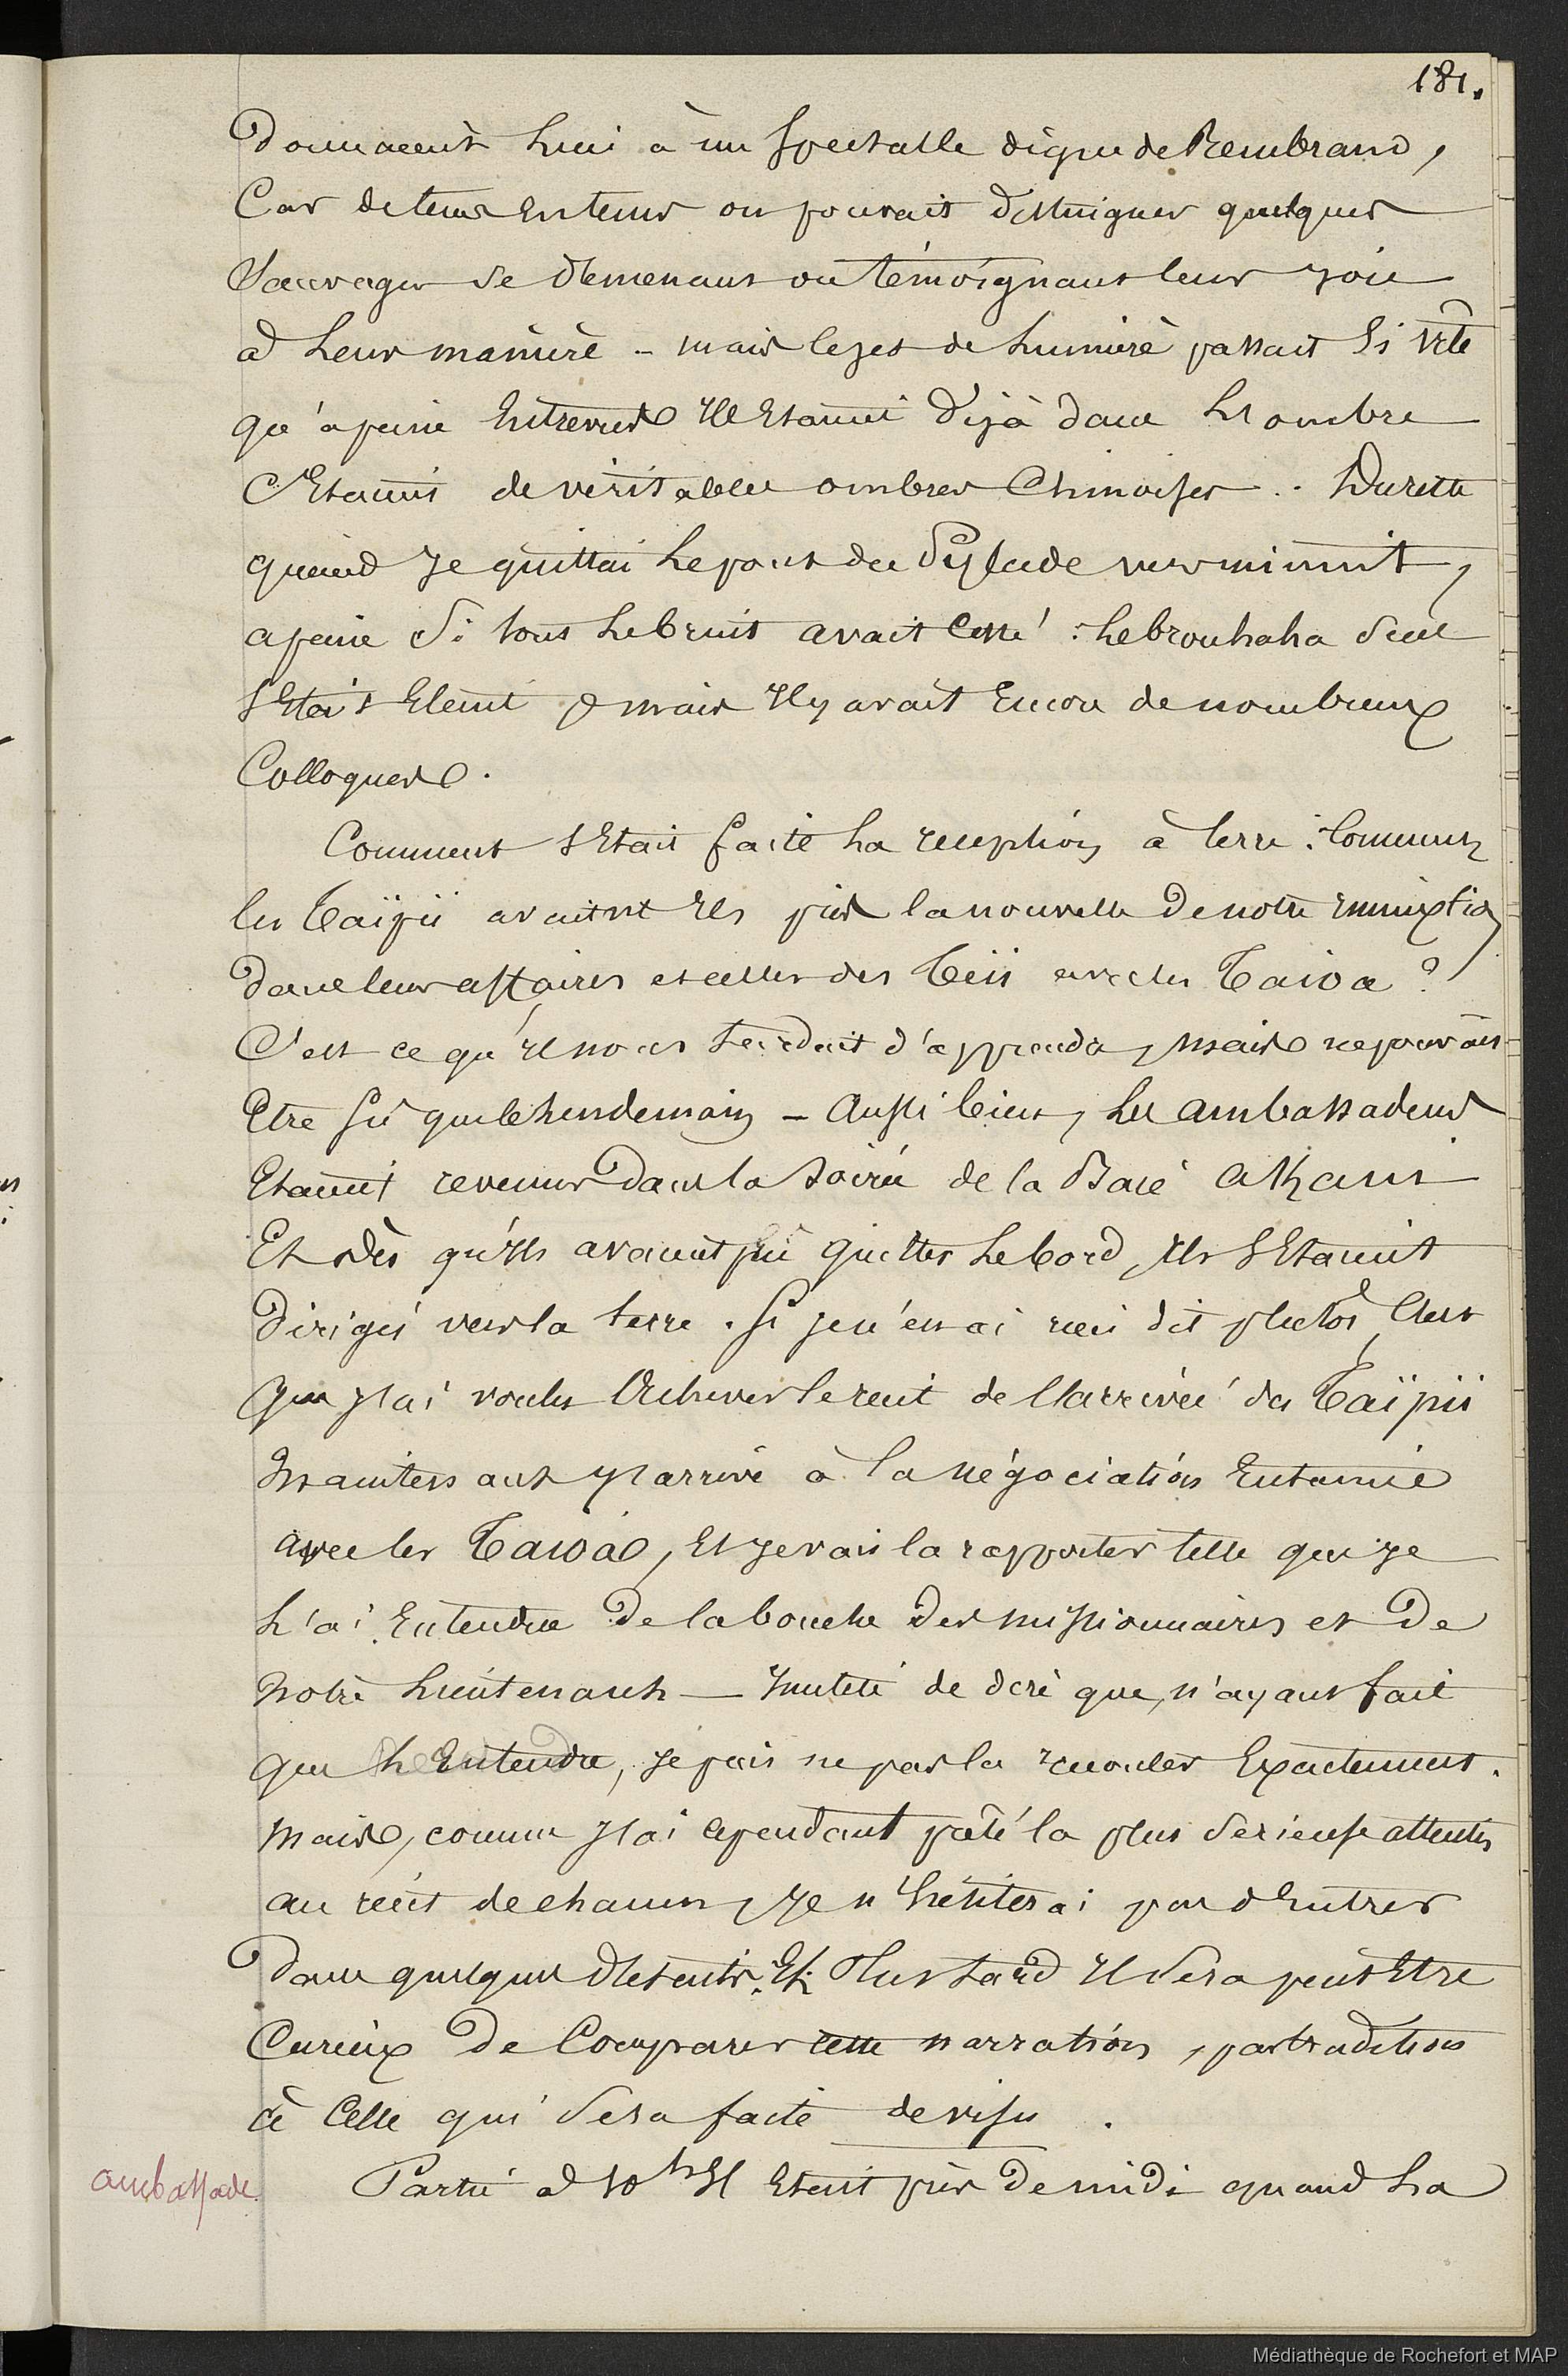 181.
donnaient lieu à un spectacle digne de Rembrand,
Car de tems en tems on pouvait distinguer quelques
Sauvages se démenant ou témoignant leur joie
à leur manière – mais le jet de lumière passait si vîte
qu'à peine entrevus Ils Etaient déjà dans l'ombre
C'Etaient de véritables ombres Chinoises. Du reste
quand Je quittai le pont du Pylade vers minuit,
apeine si tout le bruit avait cessé : le brouhaha seul
s'Etait Eteint, mais Il y avait Encore de nombreux
Colloques.
Comment s'Etait faite la reception à terre : Comment
les Taïpii avaient Ils pris la nouvelle de notre immixtion
dans leurs affaires et celles des Teii avec les Taioa ?
C'est ce qu'Il nous tardait d'apprendre, mais ne pouvait
Etre su que le lendemain – Aussi bien, les ambassadeurs
Etaient revenus dans la soirée de la Baie Akani
Et dès qu'Ils avaient pu quitter le bord, Ils s'Etaient
dirigés vers la terre. Si je n'en ai rien dit plutôt, C'est
que J'ai voulu Achever le récit de l'arrivée des Taïpii
Maintenant J'arrive à la négociation Entamée
avec les Taioa, Et Je vais la rapporter telle que Je
l'ai Entendue de la bouche des missionnaires et de
notre lieutenant — Inutile de dire que, n'ayant fait
que l'Entendre, Je puis ne pas la raconter Exactement.
Mais, comme J'ai cependant prêté la plus sérieuse attention
au récit de chacun, Je n'hésiterai pas d'Entrer
dans quelques détails. Et Plus tard Il sera peut Etre
Curieux de Comparer cette narration, par tradition
à Celle qui sera faite de visu.
ambassade.
Partie à 10h Il Etait près de midi quand la
Médiathèque de Rochefort et MAP